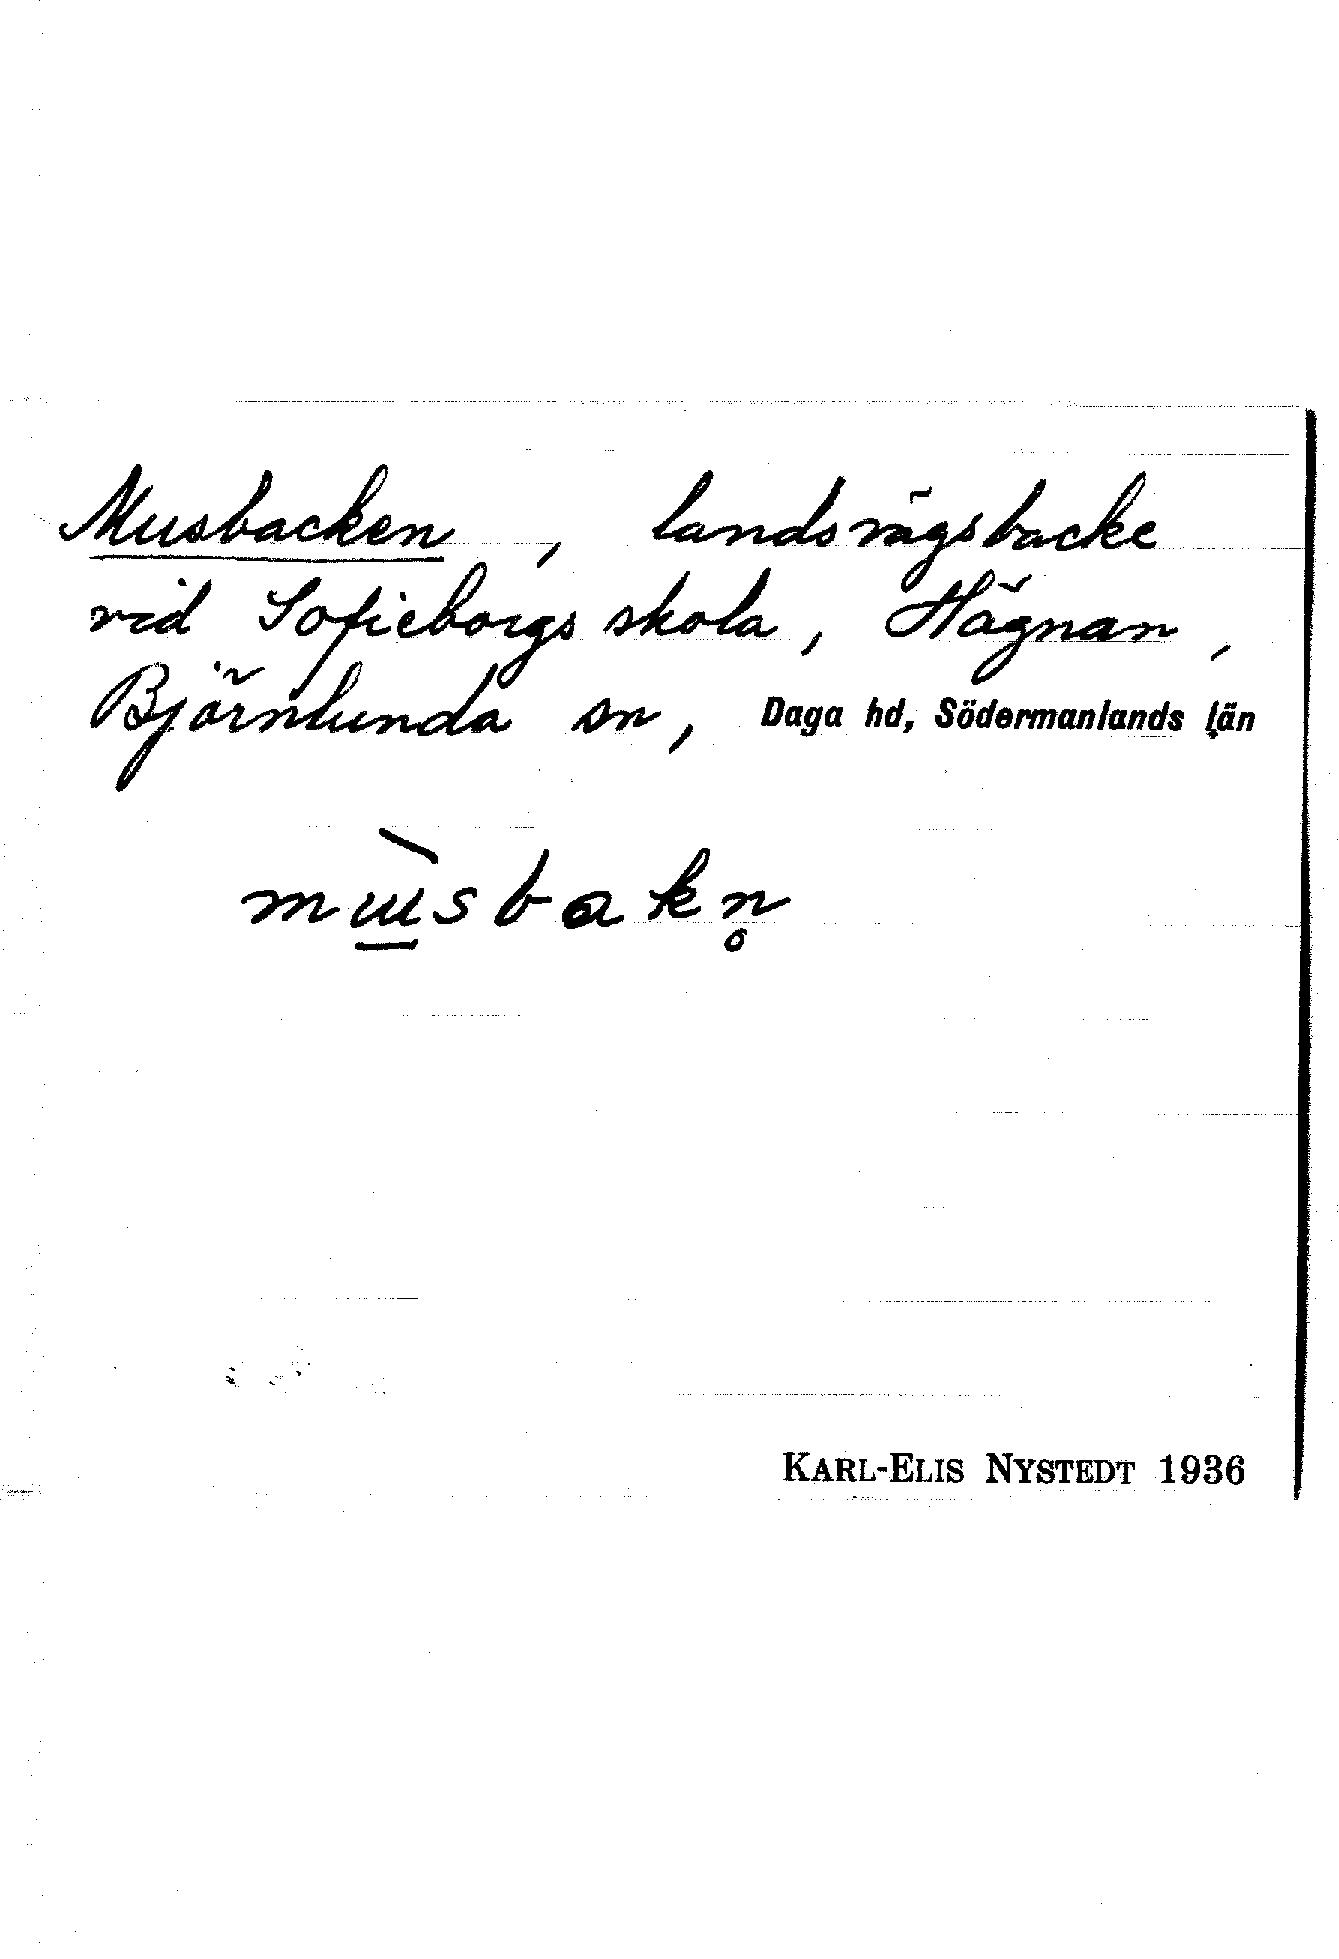 Musbacken, landsvägsbacke
vid Sofieborgs skola, Hägnan,
Björnlunda sn, Daga hd, Södermanlands län
mɯ̲̀sbakn̥
KARL-ELIS NYSTEDT 1936